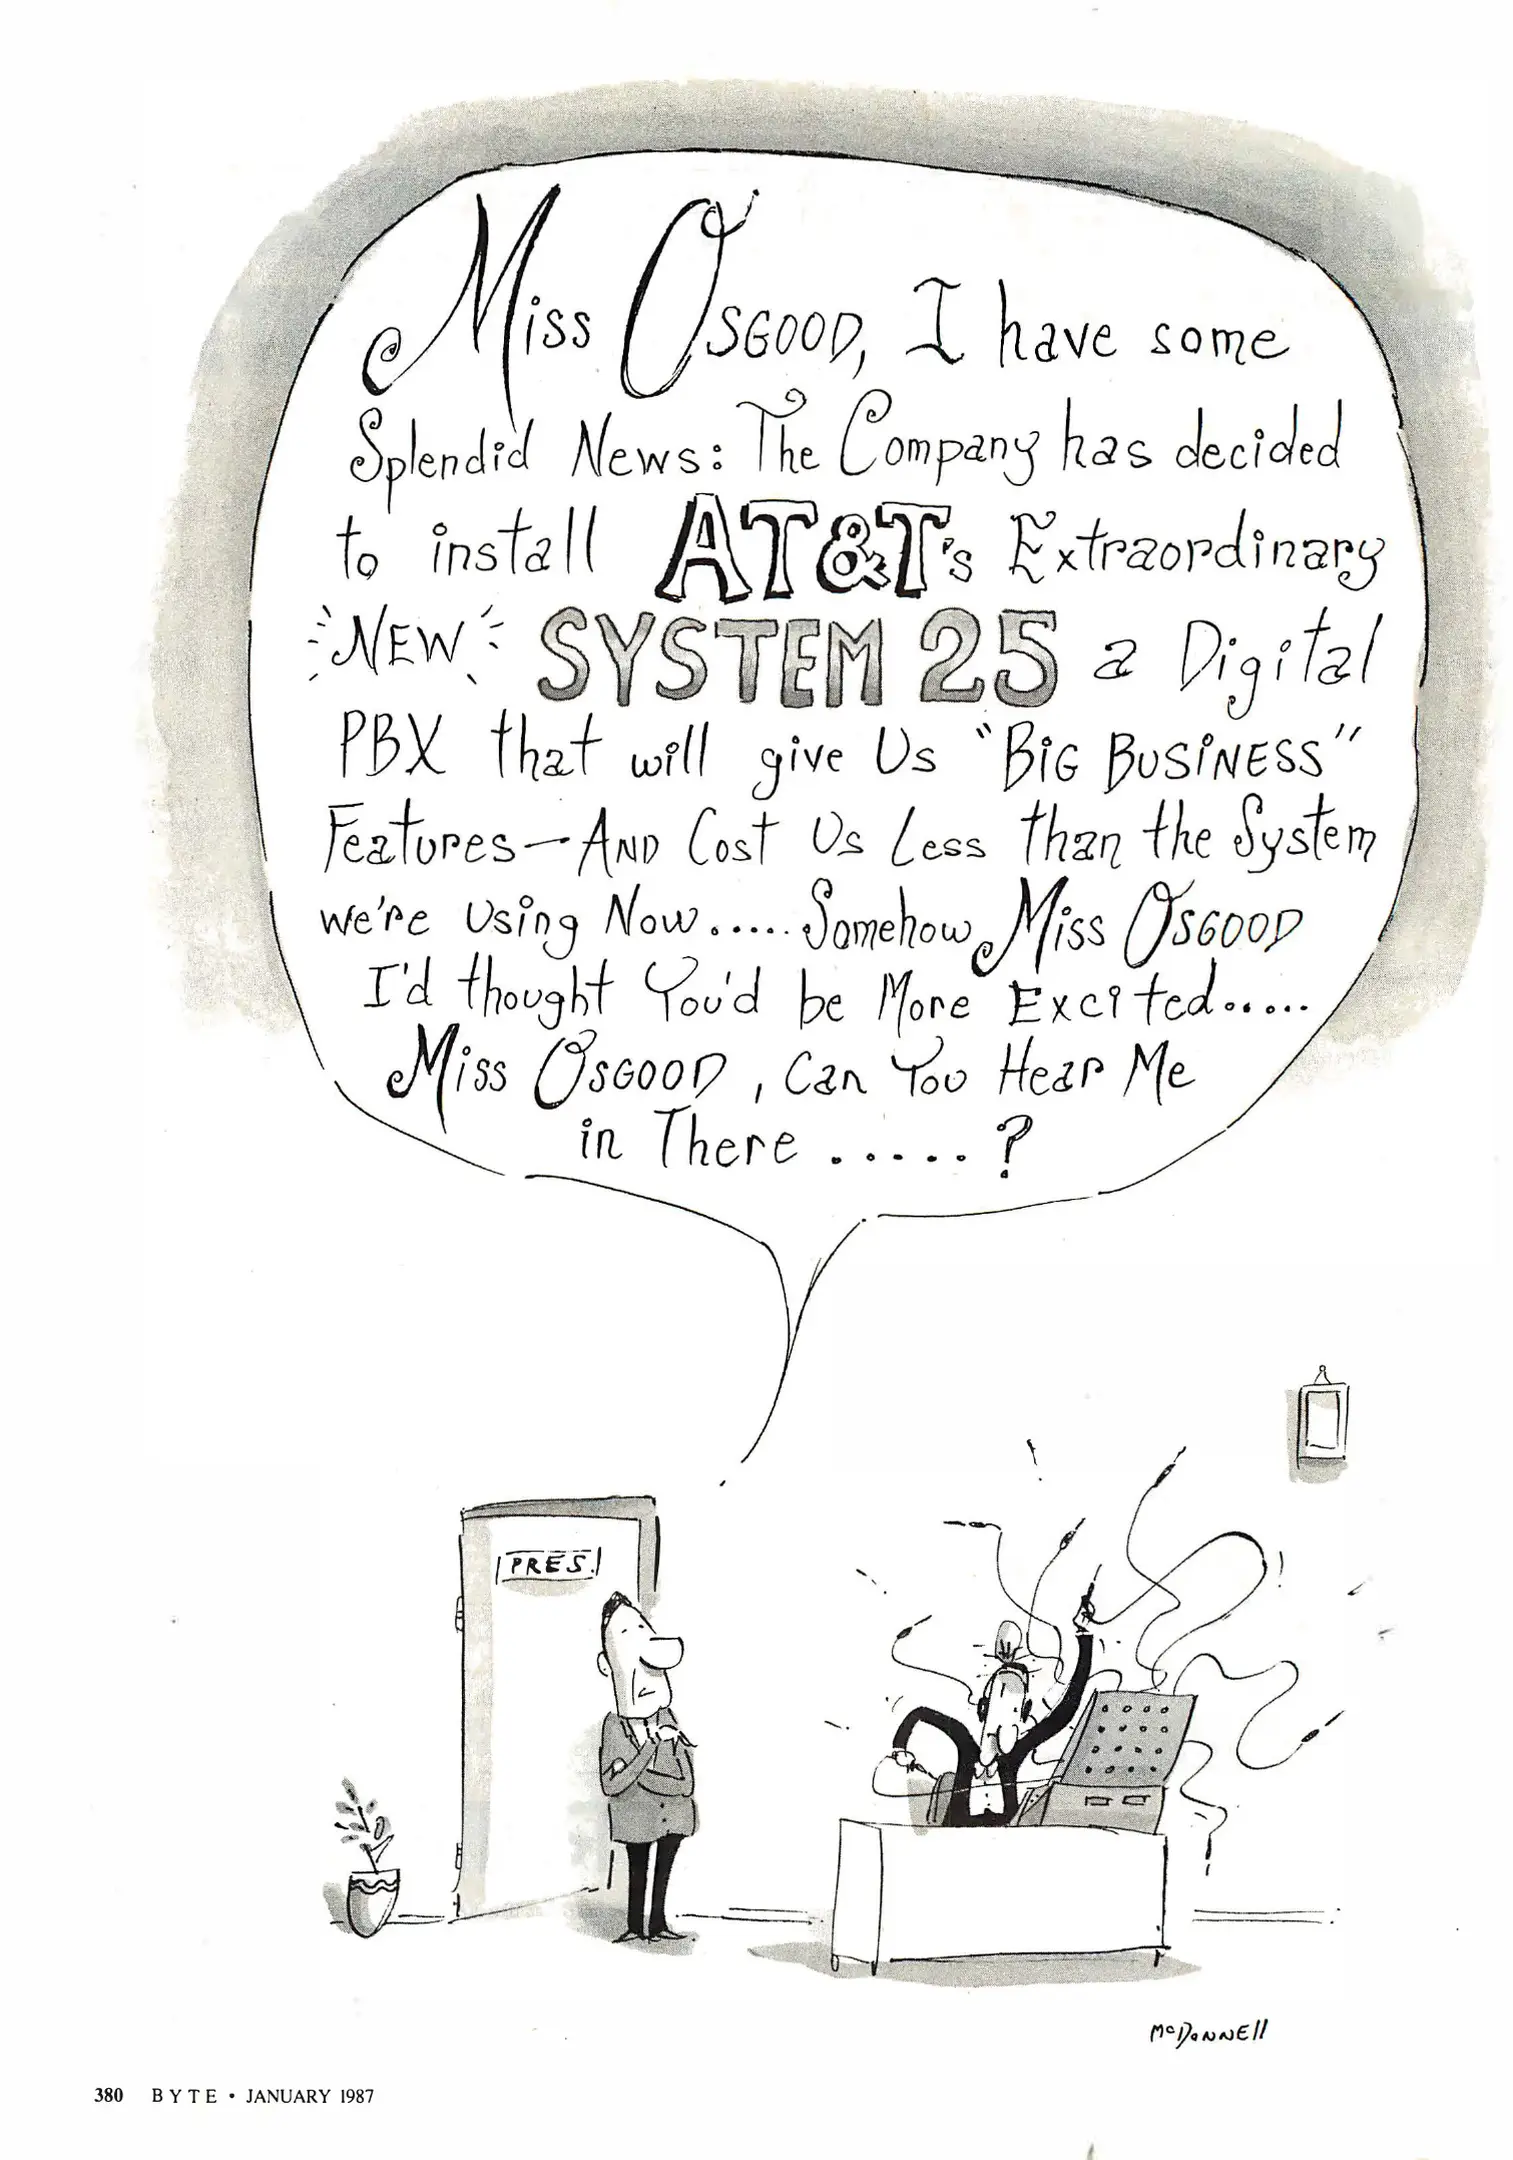 Miss Osgood, I have some
Splendid News: The Company has decided
to install AT&T's Extraordinary
NEW SYSTEM 25 a Digital
PBX that will give Us "Big Business"
Features—And Cost Us Less than the System
we're Using Now..... Somehow Miss Osgood
I'd thought You'd be More Excited.....
Miss Osgood, Can You Hear Me
in There .....?
PRES.
McDonnell
380 BYTE • JANUARY 1987